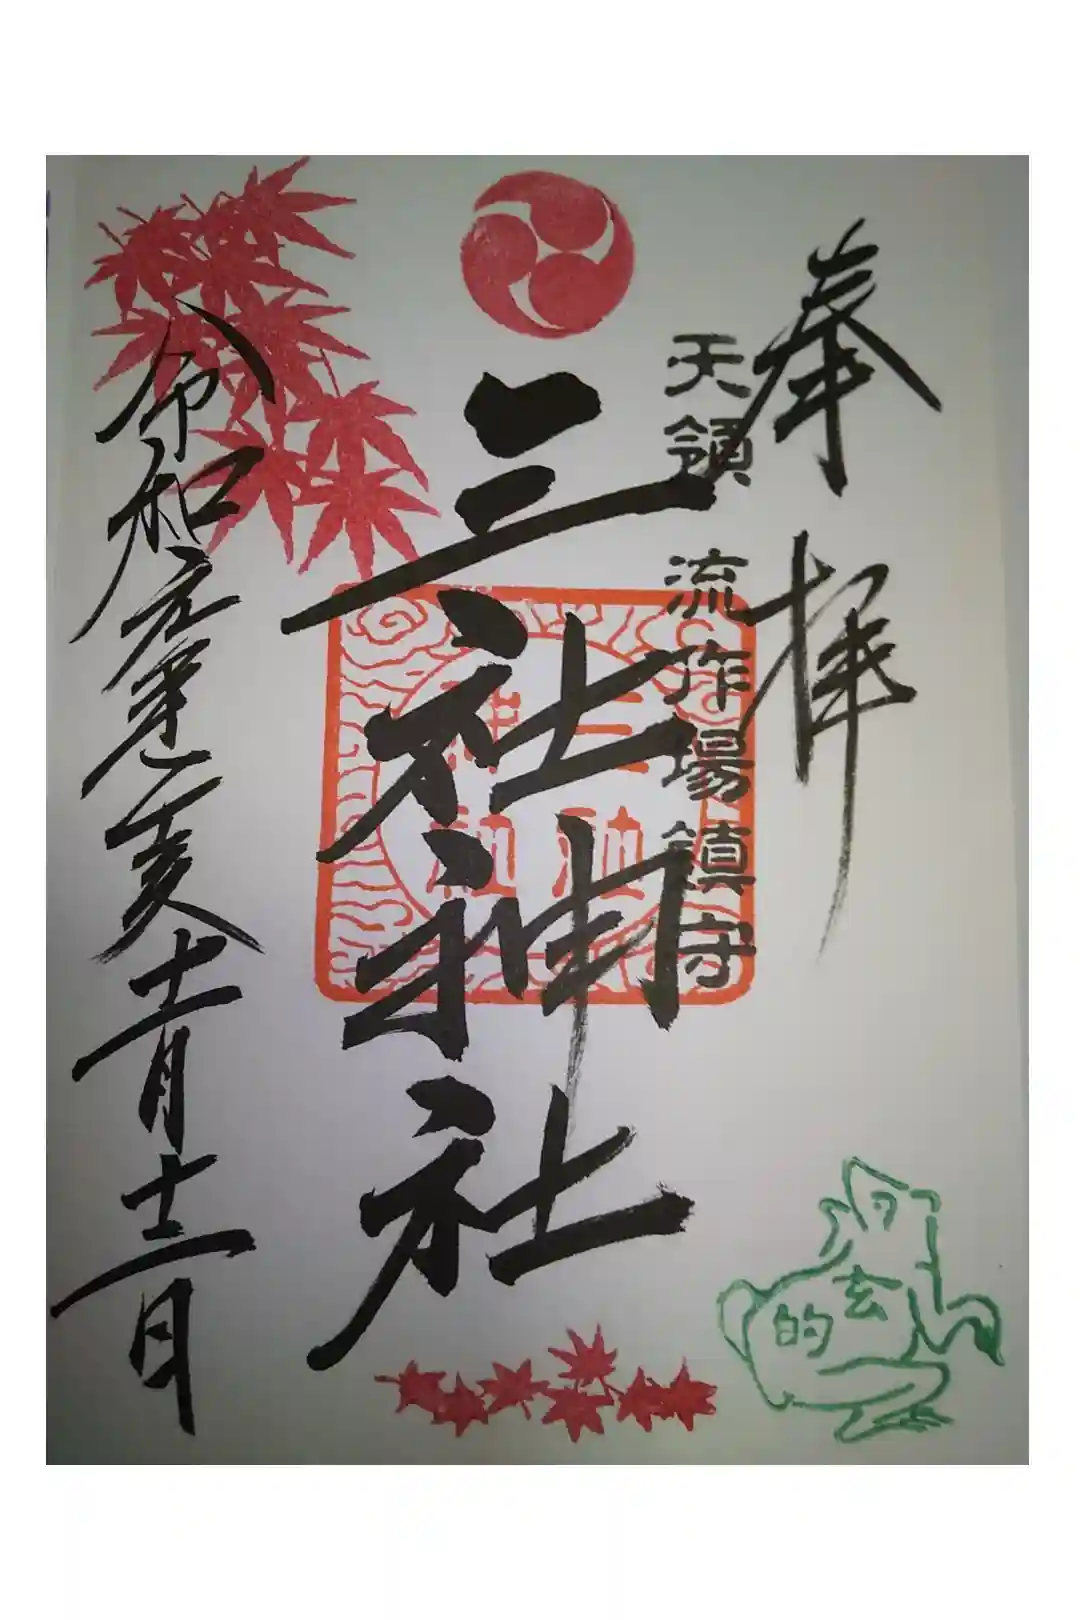 奉拝
天領 流作場鎮守
三社神社
三社
神社
令和元年己亥十一月十二日
玄
的